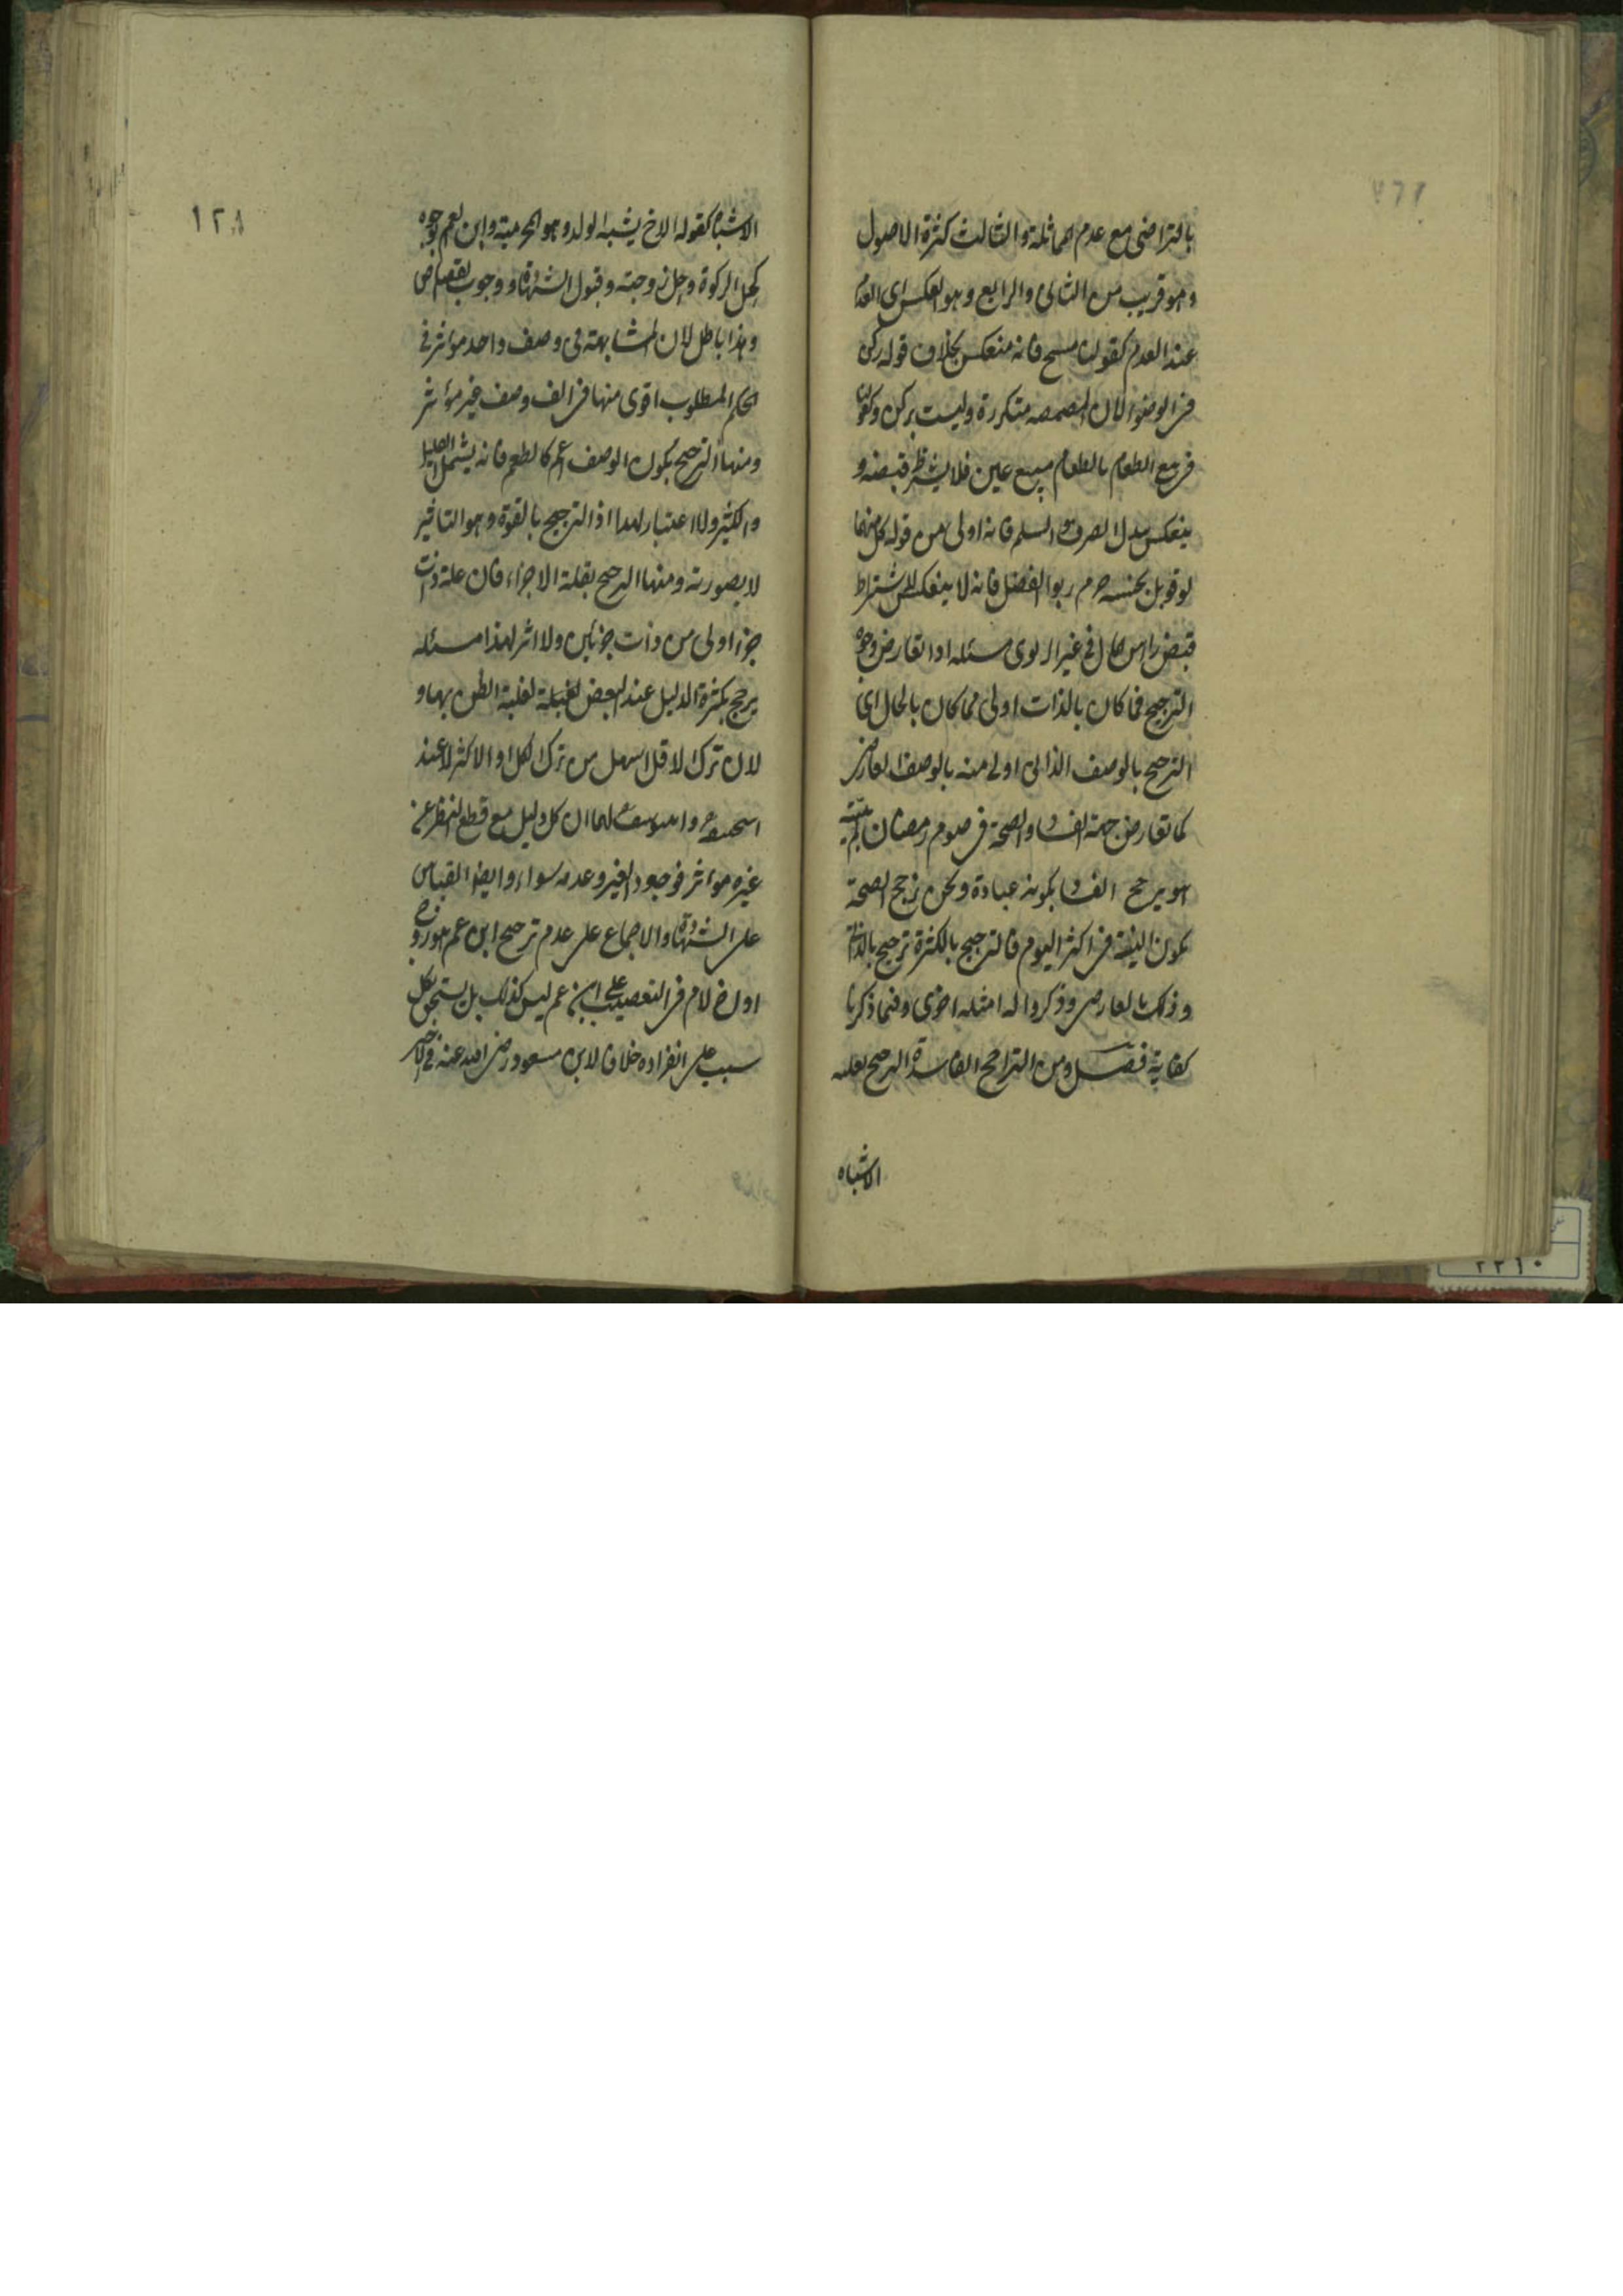 بالتراضى مع عدم المماثلة والثالث كثرة الاصول
وهو قريب من الثانى والرابع وهو العكس اى العدم
عند العدم كقولنا مسح فانه منعكس بخلاف قوله ركن
فى الوضوء لان المضمضه متكررة وليست بركن وكقولنا
فى بيع الطعام بالطعام مبيع عين فلا يشترط قبضه و
ينعكس ببدل الصرف والسلم فانه اولى من قوله كل منهما
لو قوبل بجنسه حرم ربوا الفضل فانه لا ينعكس لاشتراط
قبض راس المال فى غير الربوى مسئله اذا تعارض وجوه
الترجيح فما كان بالذات اولى مما كان بالحال اى
الترجيح بالوصف الذاتى اولى منه بالوصف العارض
كما تعارض جهة الفساد والصحة فى صوم رمضان لم يبيته
هو يرجح الفساد بكونه عبادة ونحن نرجح الصحة
بكون النية فى اكثر اليوم فالترجيح بالكثرة ترجيح بالذات
وذلك بالعارض وذكروا له امثله اخرى وفيما ذكرنا
كفاية فصل ومن التراجيح الفاسدة الترجيح بغلبه
الاشباه
١٢٨
الاشباه كقوله الاخ يشبه الولد وهو المحرمية وابن العم بوجوه
كحل الزكوة وحل زوجته وقبول الشهادة ووجوب القصاص
وهذا باطل لان المشابهة فى وصف واحد مؤثر فى
الحكم المطلوب اقوى منها فى الف وصف غير مؤثر
ومنها الترجيح بكون الوصف اعم كالطعم فانه يشمل القليل
والكثير ولا اعتبار لهذا اذ الترجيح بالقوة وهو التاثير
لا بصورته ومنها الترجيح بقلة الاجزاء فان علة ذات
جزء اولى من ذات جزئين ولا اثر لهذا مسئله
يرجح بكثرة الدليل عند البعض لغلبة الظن بها و
لان ترك الاقل اسهل من ترك الكل او الاكثر لا عند
لهما ان كل دليل مع قطع النظر عن
غيره مؤثر فوجود الغير وعدمه سواء وايضا القياس
على الشهادة والاجماع على عدم ترجيح ابن عم هو زوج
او اخ لام فى التعصيب على ابن عم ليس كذلك بل يستحق بكل
سبب على انفراده خلافا لابن مسعود رضى الله عنه فى الاخير